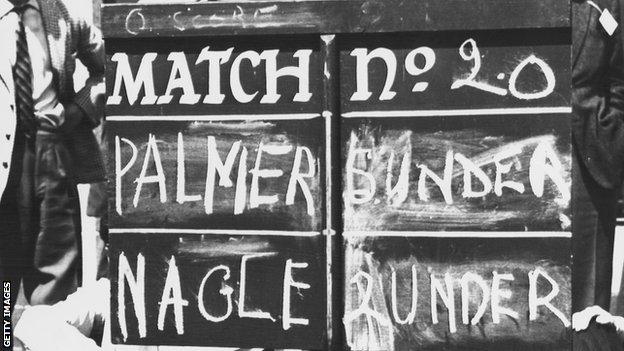 O. SCORE
MATCH No. 20
PALMER 5 UNDER
NAGLE 2 UNDER
BBC
GETTY IMAGES